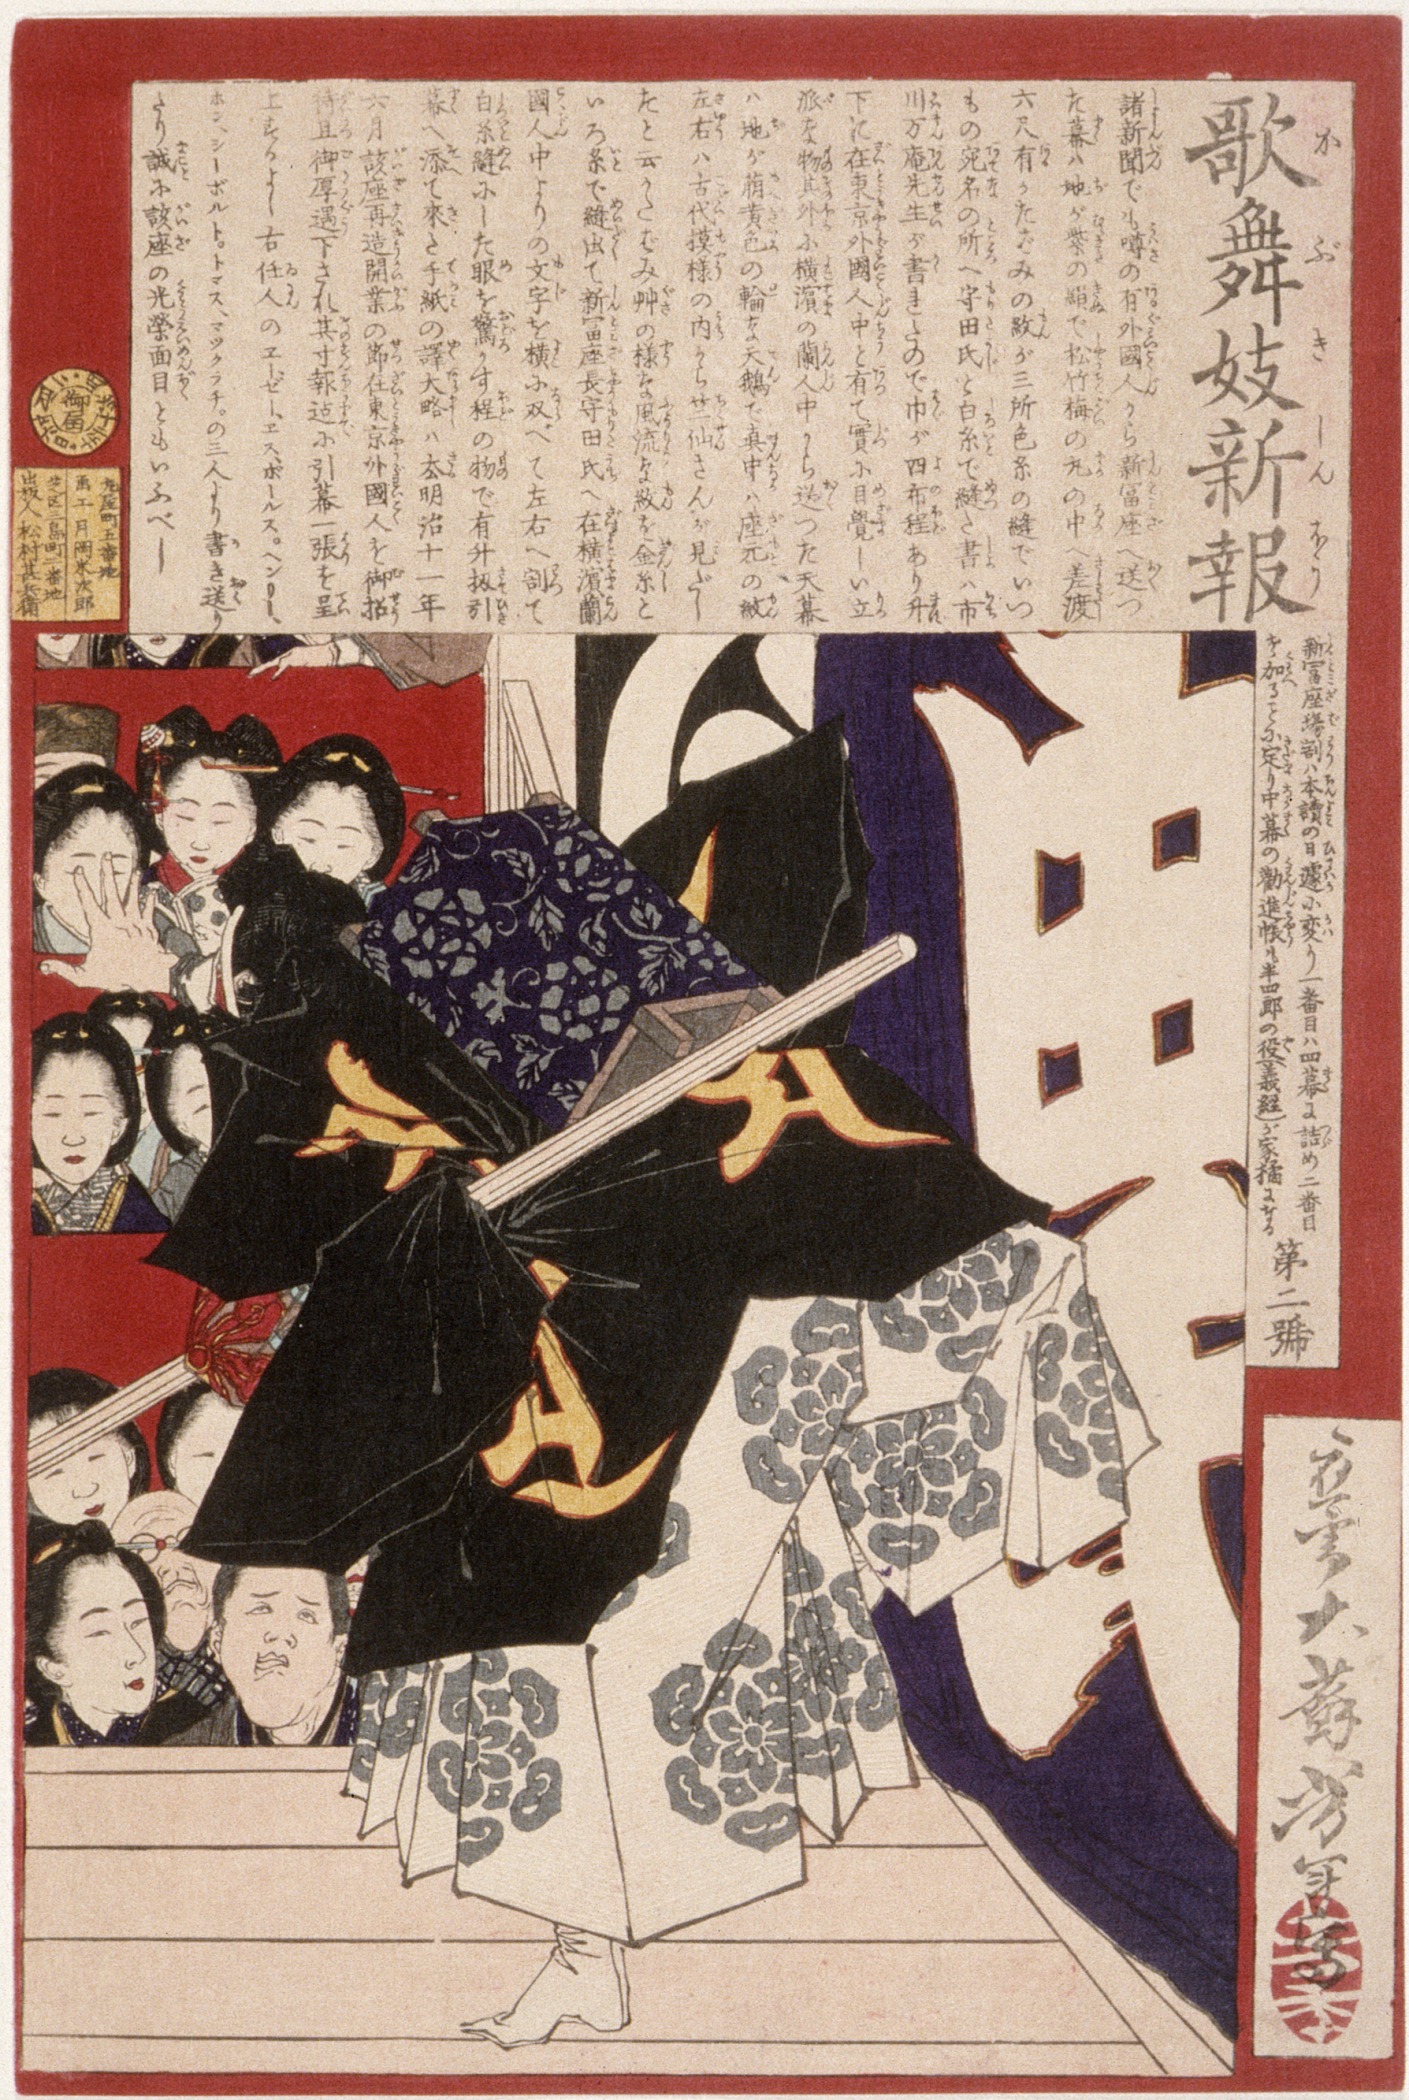 歌舞妓新報
かぶきしんぽう
諸新聞でも噂の有外國人から新富座へ送つ
た幕ハ地が紫の絹で松竹梅の丸の中へ差渡
六尺有うたがみの紋が三所色糸の縫でいつ
もの宛名の所へ守田氏と白糸で縫た書ハ市
川万庵先生が書ましたので巾が四布程あり升
下に在東京外國人中と有て實に目覺しい立
派な物其外に横濱の蘭人中から送つた天幕
ハ地が萠黄色の輪な天鵝で真中ハ座元の紋
左右ハ古代摸様の内から廿仙さんが見だし
たと云かたむみ艸の様な風流な紋を金糸と
いろ糸で縫出て新富座長守田氏へ在横濱蘭
國人中よりの文字を横に双べて左右へ割て
白糸縫にした眼を驚かす程の物で有升扨引
幕へ添て來た手紙の譯大略ハ本明治十一年
六月該座再造開業の節住東京外國人を御招
待且御厚遇下され其寸報迠に引幕一張を呈
上するよし右任人のエーゼー、エス、ボールス。ヘンリー、
ホン、シーボルト。トマス、マックラチ。の三人より書き送り
たり誠に該座の光榮面目ともいふべし
新富座場割ハ本讀の日遽に変り一番目ハ四幕に詰め二番目
を加ることに定り中幕の勸進帳も半四郎の役(義経)が家橘になる
第二號
應需大蘇芳年寫
御届
丸屋町五番地
画工 月岡米次郎
芝区三島町二番地
出版人 松村甚兵衛